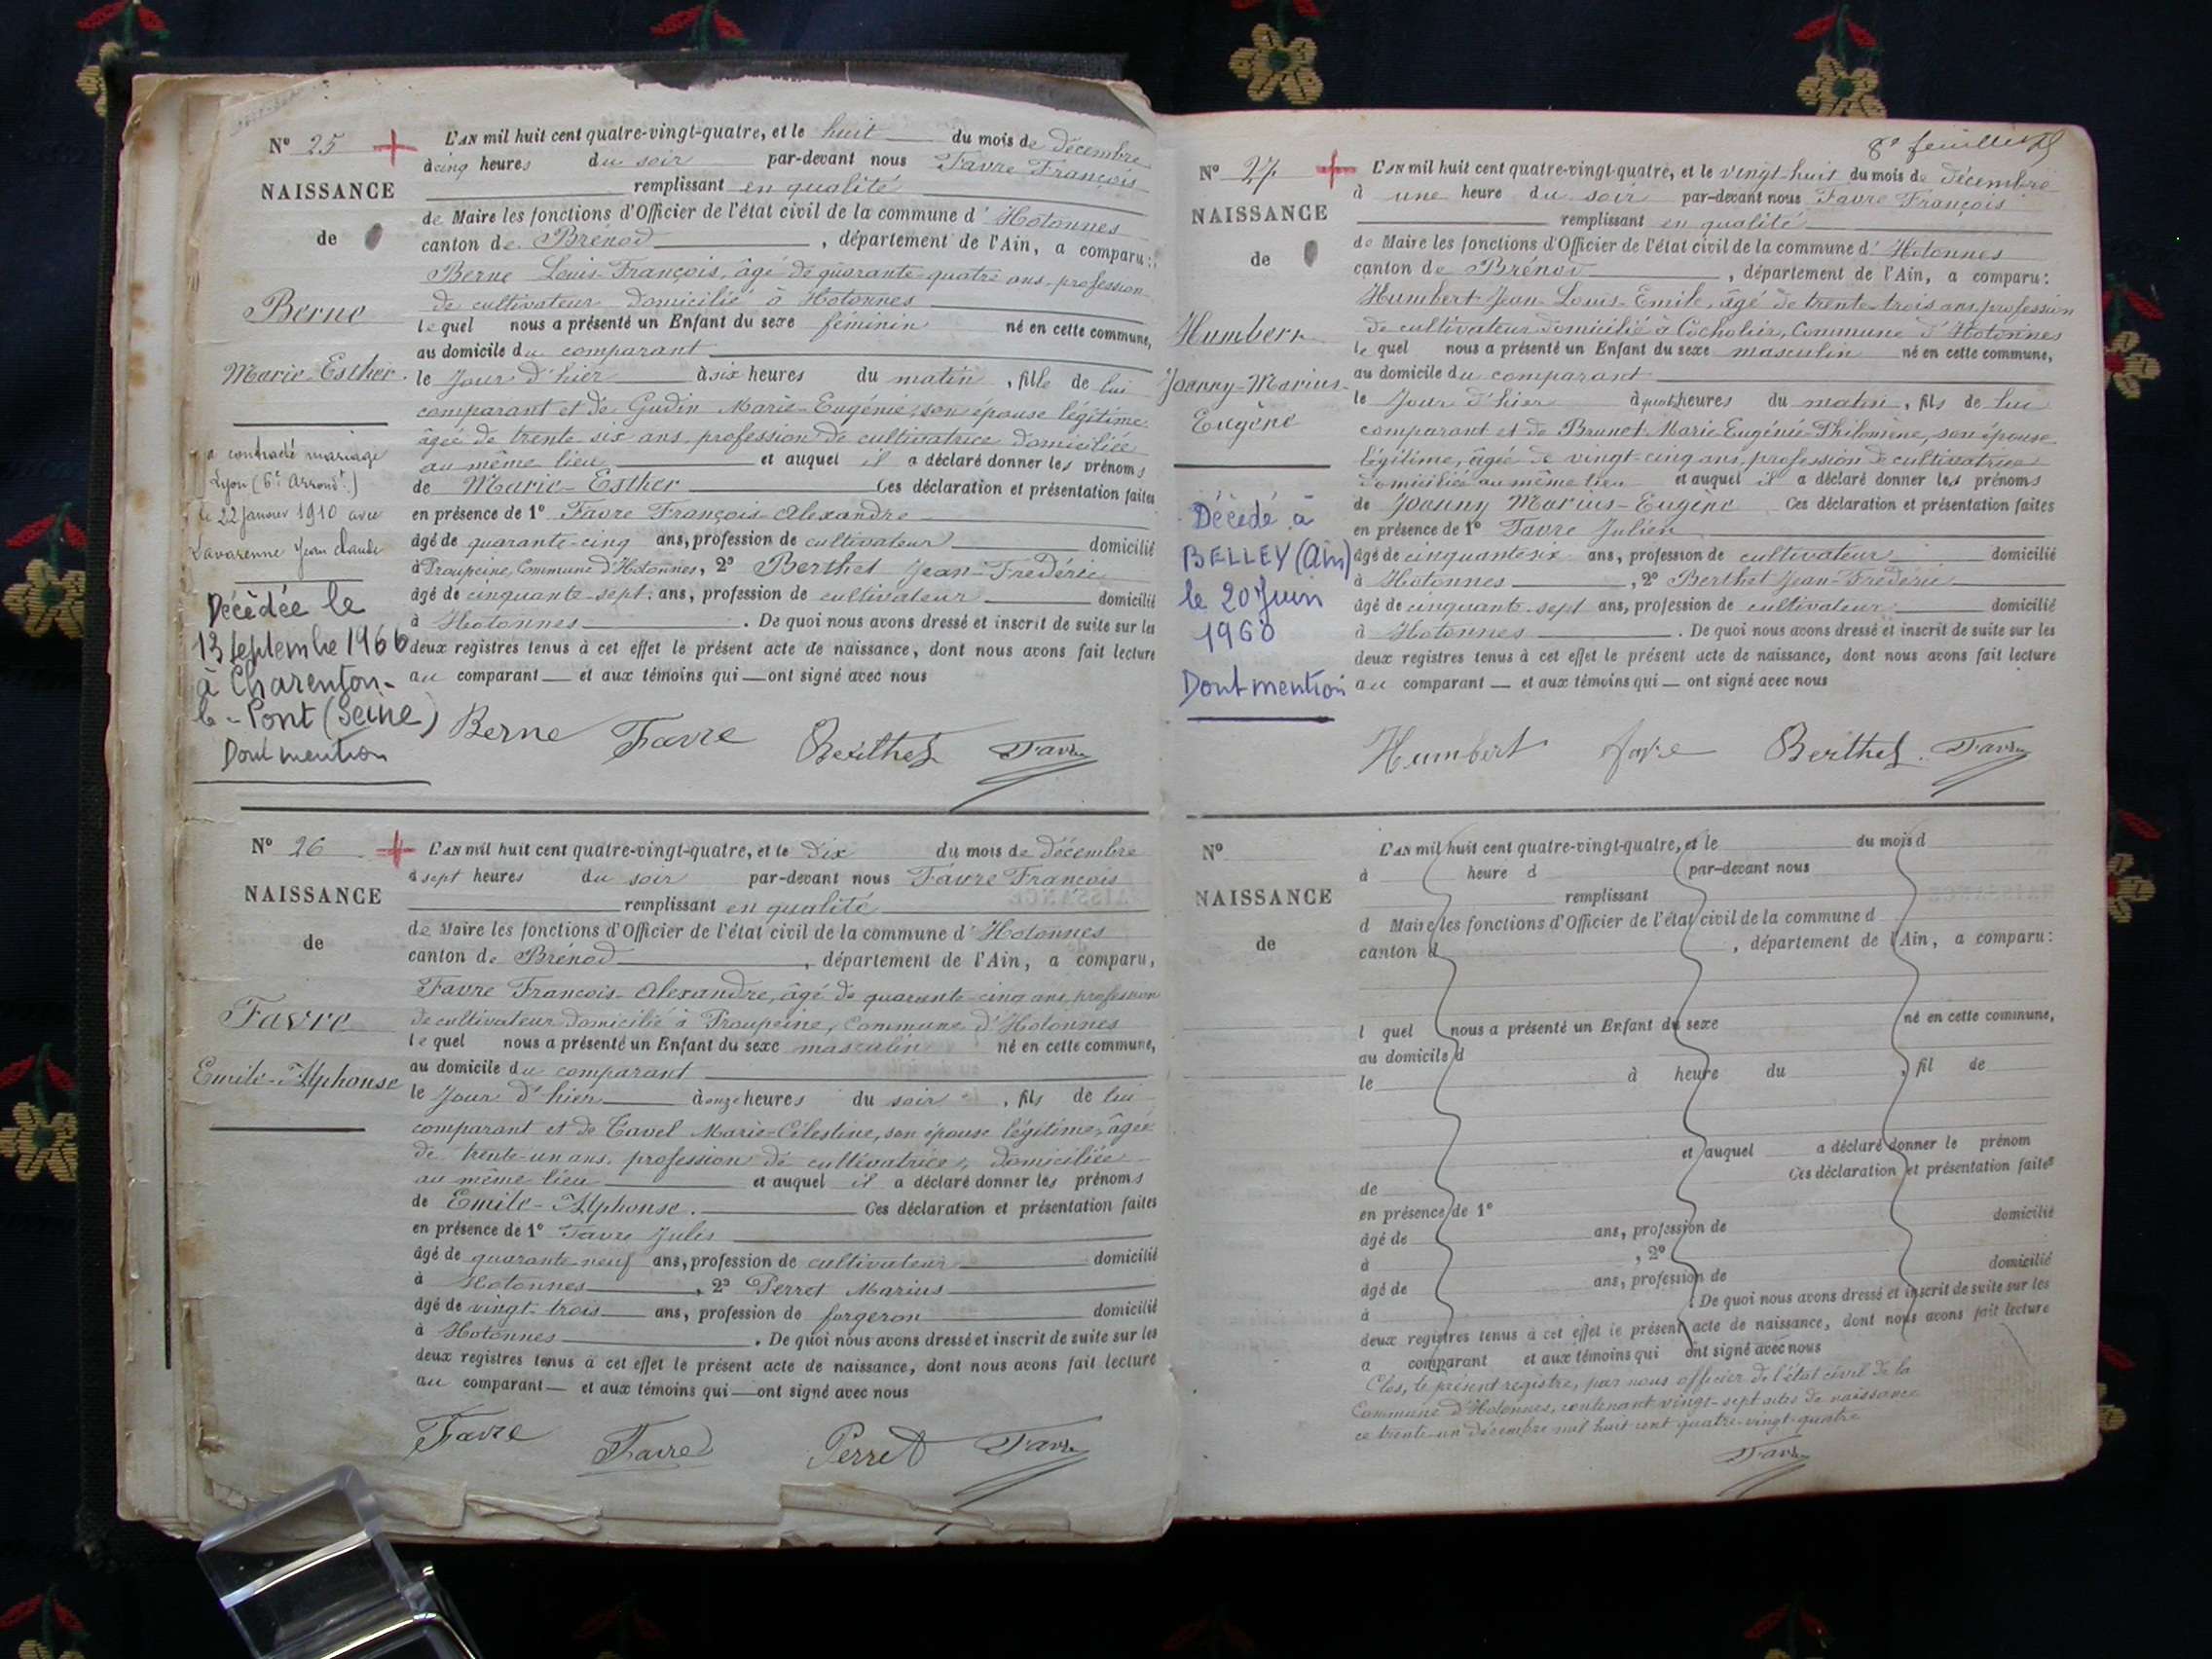 Nº 25
NAISSANCE
de
Berne
Marie-Esther.
a contracté mariage
Lyon (6e Arrondt.)
le 22 Janvier 1910 avec
Lavarenne Jean Claude
Décédée le
13 septembre 1966
à Charenton-
le-Pont (Seine)
Dont mention
L'AN mil huit cent quatre-vingt-quatre, et le huit du mois de décembre
à cinq heures du soir par-devant nous Favre François
remplissant en qualité
de Maire les fonctions d'Officier de l'état civil de la commune d'Hotonnes
canton de Brénod, département de l'Ain, a comparu:
Berne Louis-François, âgé de quarante-quatre ans, profession
de cultivateur domicilié à Hotonnes
lequel nous a présenté un Enfant du sexe féminin né en cette commune,
au domicile du comparant
le jour d'hier à six heures du matin, fille de lui
comparant et de Gudin Marie-Eugénie, son épouse légitime
âgée de trente-six ans, profession de cultivatrice domiciliée
au même lieu et auquel il a déclaré donner les prénoms
de Marie-Esther Ces déclaration et présentation faites
en présence de 1º Favre François-Alexandre
âgé de quarante-cinq ans, profession de cultivateur domicilié
à Troupeine, Commune d'Hotonnes, 2º Berthet Jean-Frédéric
âgé de cinquante-sept ans, profession de cultivateur domicilié
à Hotonnes. De quoi nous avons dressé et inscrit de suite sur les
deux registres tenus à cet effet le présent acte de naissance, dont nous avons fait lecture
au comparant et aux témoins qui ont signé avec nous
Berne Favre Berthet Favre
Nº 26
NAISSANCE
de
Favre
Emile-Alphonse
L'AN mil huit cent quatre-vingt-quatre, et le dix du mois de décembre
à sept heures du soir par-devant nous Favre François
remplissant en qualité
de Maire les fonctions d'Officier de l'état civil de la commune d'Hotonnes
canton de Brénod, département de l'Ain, a comparu,
Favre François-Alexandre, âgé de quarante-cinq ans, profession
de cultivateur domicilié à Troupeine, Commune d'Hotonnes
lequel nous a présenté un Enfant du sexe masculin né en cette commune,
au domicile du comparant
le jour d'hier à onze heures du soir, fils de lui
comparant et de Tavel Marie-Célestine, son épouse légitime, âgée
de trente-un ans, profession de cultivatrice, domiciliée
au même lieu et auquel il a déclaré donner les prénoms
de Emile-Alphonse. Ces déclaration et présentation faites
en présence de 1º Favre Jules
âgé de quarante-neuf ans, profession de cultivateur domicilié
à Hotonnes, 2º Perret Marius
âgé de vingt-trois ans, profession de forgeron domicilié
à Hotonnes. De quoi nous avons dressé et inscrit de suite sur les
deux registres tenus à cet effet le présent acte de naissance, dont nous avons fait lecture
au comparant et aux témoins qui ont signé avec nous
Favre Favre Perret Favre
8e feuillet
Nº 27
NAISSANCE
de
Humbert
Joanny-Marius-
Eugène
Décédé à
BELLEY (Ain)
le 20 Juin
1960
Dont mention
L'AN mil huit cent quatre-vingt-quatre, et le vingt-huit du mois de décembre
à une heure du soir par-devant nous Favre François
remplissant en qualité
de Maire les fonctions d'Officier de l'état civil de la commune d'Hotonnes
canton de Brénod, département de l'Ain, a comparu:
Humbert Jean-Louis-Emile, âgé de trente-trois ans, profession
de cultivateur domicilié à Cocholier, Commune d'Hotonnes
lequel nous a présenté un Enfant du sexe masculin né en cette commune,
au domicile du comparant
le jour d'hier à quatre heures du matin, fils de lui
comparant et de Brunet Marie-Eugénie-Philomène, son épouse
légitime, âgée de vingt-cinq ans, profession de cultivatrice
domiciliée au même lieu et auquel il a déclaré donner les prénoms
de Joanny Marius-Eugène Ces déclaration et présentation faites
en présence de 1º Favre Julien
âgé de cinquante-six ans, profession de cultivateur domicilié
à Hotonnes, 2º Berthet Jean-Frédéric
âgé de cinquante-sept ans, profession de cultivateur domicilié
à Hotonnes. De quoi nous avons dressé et inscrit de suite sur les
deux registres tenus à cet effet le présent acte de naissance, dont nous avons fait lecture
au comparant et aux témoins qui ont signé avec nous
Humbert favre Berthet Favre
Nº
NAISSANCE
de
L'AN mil huit cent quatre-vingt-quatre, et le du mois d
à heure d par-devant nous
remplissant
d Maire les fonctions d'Officier de l'état civil de la commune d
canton d, département de l'Ain, a comparu:
l quel nous a présenté un Enfant du sexe né en cette commune,
au domicile d
le à heure du, fil de
et auquel a déclaré donner le prénom
de Ces déclaration et présentation faites
en présence de 1º
âgé de ans, profession de domicilié
à, 2º
âgé de ans, profession de domicilié
à. De quoi nous avons dressé et inscrit de suite sur les
deux registres tenus à cet effet le présent acte de naissance, dont nous avons fait lecture
a comparant et aux témoins qui ont signé avec nous
Clos, le présent registre, par nous officier de l'état civil de la
Commune d'Hotonnes, contenant vingt-sept actes de naissance
ce trente-un décembre mil huit cent quatre-vingt-quatre
Favre